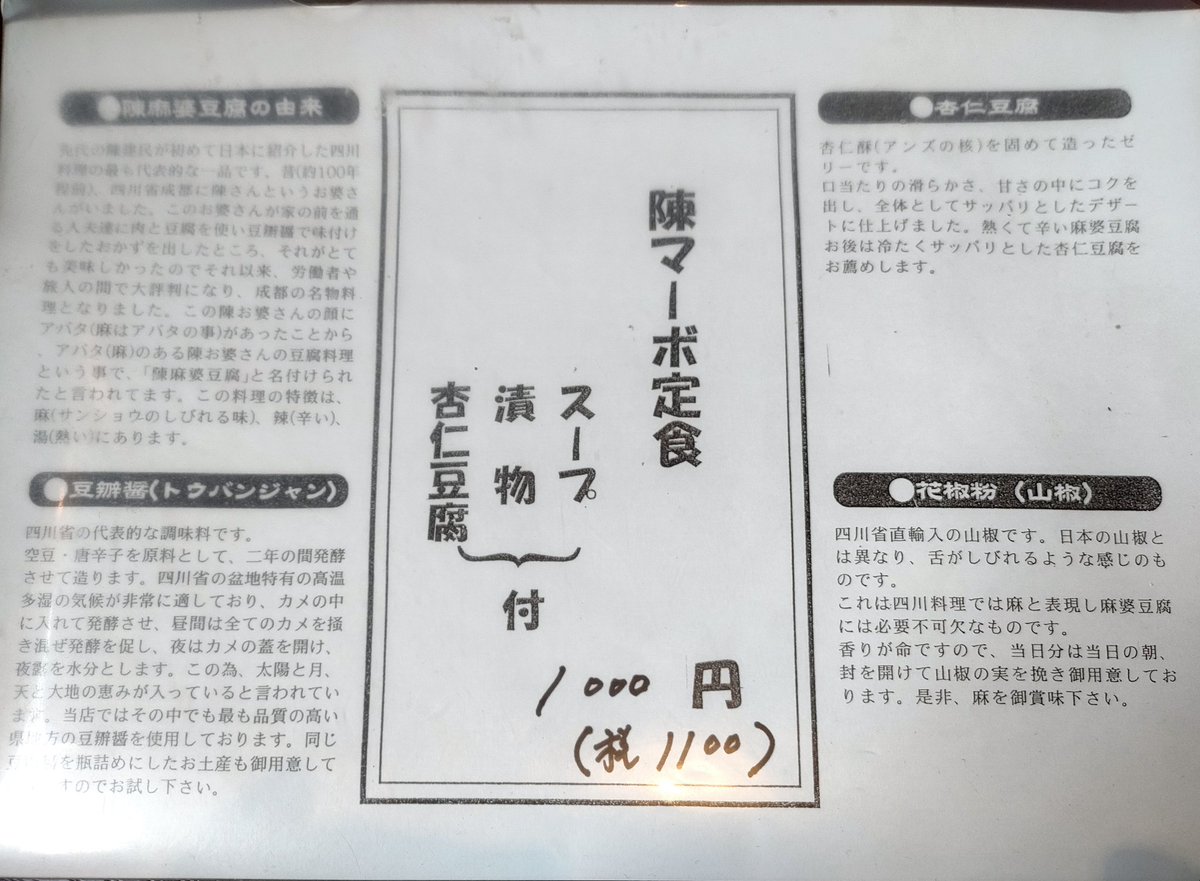 ●陳麻婆豆腐の由来
先代の陳建民が初めて日本に紹介した四川
料理の最も代表的な一品です。昔(約100年
程前)、四川省成都に陳さんというお婆さ
んがいました。このお婆さんが家の前を通
る人夫達に肉と豆腐を使い豆瓣醤で味付け
をしたおかずを出したところ、それがとて
も美味しかったのでそれ以来、労働者や
旅人の間で大評判になり、成都の名物料
理となりました。この陳お婆さんの顔に
アバタ(麻はアバタの事)があったことから
、アバタ(麻)のある陳お婆さんの豆腐料理
という事で、「陳麻婆豆腐」と名付けられ
たと言われてます。この料理の特徴は、
麻(サンショウのしびれる味)、辣(辛い)、
湯(熱い)にあります。
●豆瓣醤(トウバンジャン)
四川省の代表的な調味料です。
空豆・唐辛子を原料として、二年の間発酵
させて造ります。四川省の盆地特有の高温
多湿の気候が非常に適しており、カメの中
に入れて発酵させ、昼間は全てのカメを掻
き混ぜ発酵を促し、夜はカメの蓋を開け、
夜露を水分とします。この為、太陽と月、
天と大地の恵みが入っていると言われてい
ます。当店ではその中でも最も品質の高い
県地方の豆瓣醤を使用しております。同じ
豆瓣醤を瓶詰めにしたお土産も御用意して
すのでお試し下さい。
陳マーボ定食
スープ
漬物
杏仁豆腐
付
1000円
(税1100)
●杏仁豆腐
杏仁酥(アンズの核)を固めて造ったゼ
リーです。
口当たりの滑らかさ、甘さの中にコクを
出し、全体としてサッパリとしたデザー
トに仕上げました。熱くて辛い麻婆豆腐
お後は冷たくサッパリとした杏仁豆腐を
お薦めします。
●花椒粉(山椒)
四川省直輸入の山椒です。日本の山椒と
は異なり、舌がしびれるような感じのも
のです。
これは四川料理では麻と表現し麻婆豆腐
には必要不可欠なものです。
香りが命ですので、当日分は当日の朝、
封を開けて山椒の実を挽き御用意してお
ります。是非、麻を御賞味下さい。